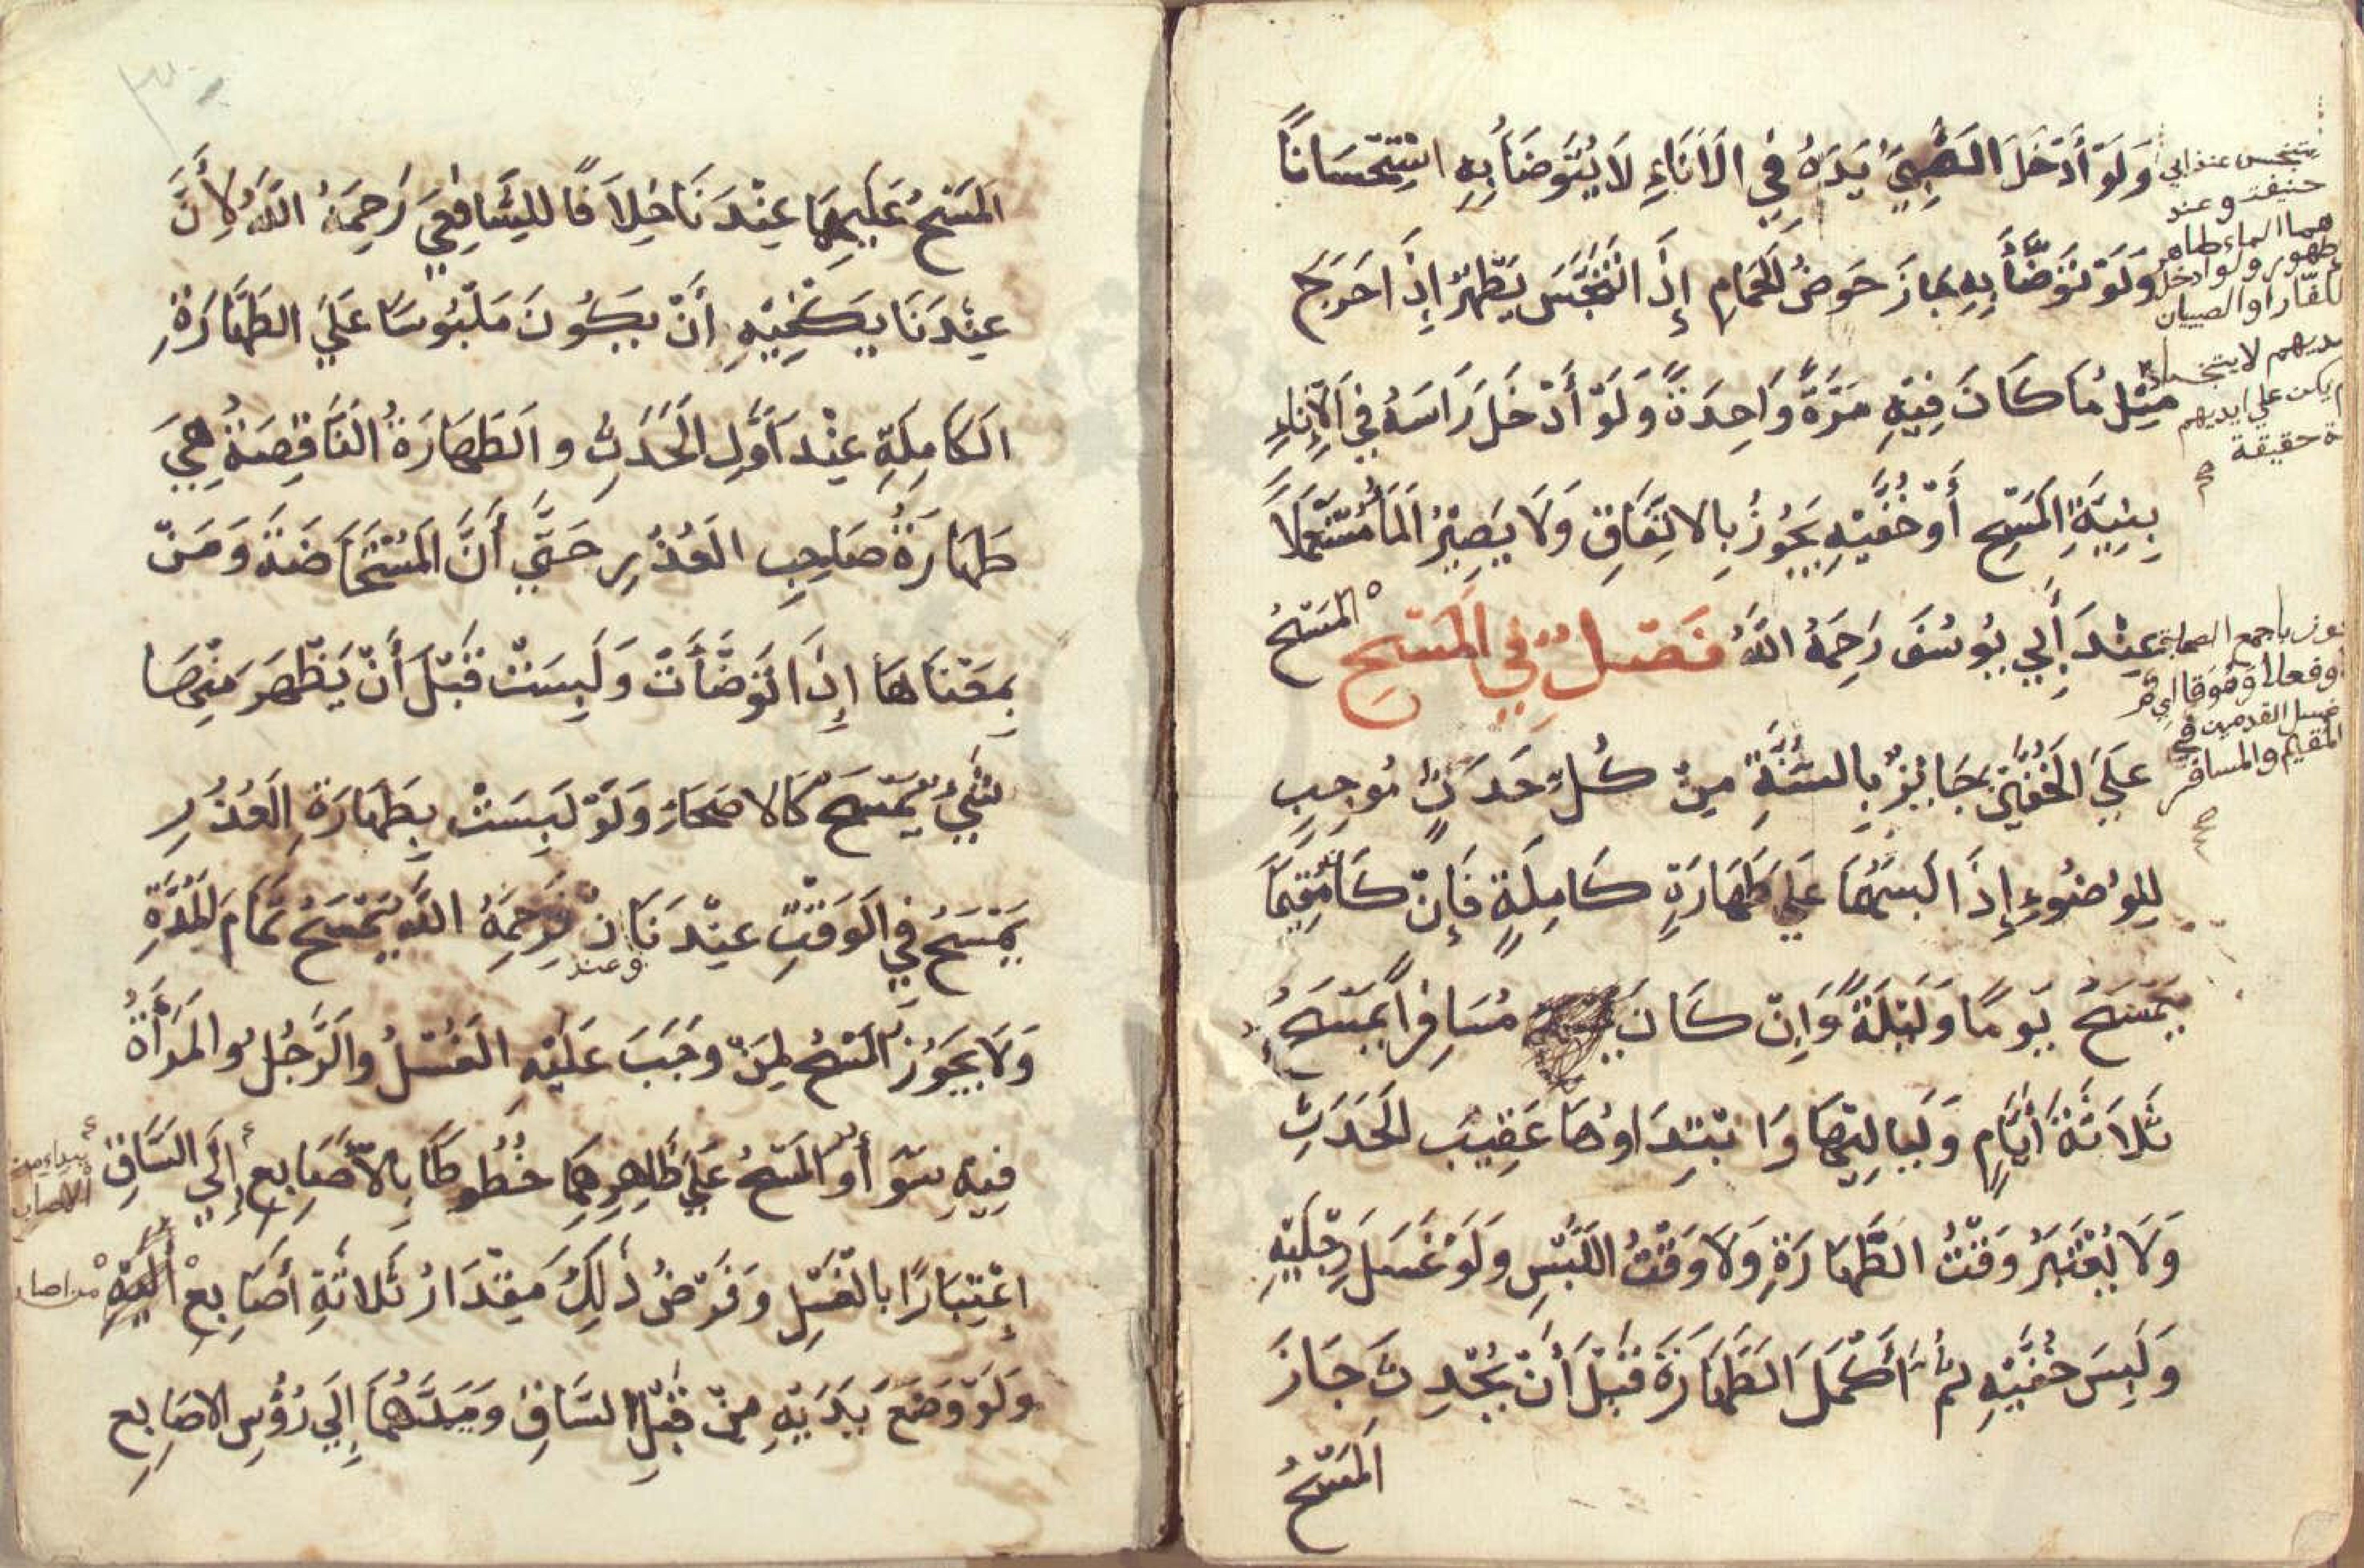 وَلَوْ أَدْخَلَ الصَّبِيُّ يَدَهُ فِي الْاَنَاءِ لَا يُتَوَضَأُ بِهِ اسْتِحْسَانًا
وَلَوْ تَوَضَّأَ بِهِ جَازَ حَوضُ الحَمَامِ إِذَ اتَنَجَّسَ يَطْهُرُ إِذَ اخَرَجَ
مِثْلُ مَا كَانَ فِيْهِ مَرَّةً وَاحِدَةً وَلَوْ أَدْخَلَ رَاسَهُ فِي الْاِنَاءِ
بِنِيَّةِ الْمَسْحِ أَوْ خُفَّيْهِ يَجُوْزُ بِالاتِفَاقِ وَلَا يَصِيْرُ الْمَاْ مُسْتَعْمَلًا
عِنْدَ أَبِي يُوسُفَ رَحِمَهُ اللَّهُ فَصْلٌ فِي الْمَسْحِ الْمَسْحُ
عَلَيَ الْخُفَّيْنِ جَايِزٌ بِالسُّنَّةِ مِنْ كُلِّ حَدَثٍ مُوجِبٍ
لِلْوُضُوءِ إِذَا لَبِسَهُمَا عَلي طَهَارَةٍ كَامِلَةٍ فَإِنْ كَا مُقِيْمًا
يَمْسَحُ يَوْمًا وَلَيْلَةً وَاِنْ كَانَ مُسَافِرًا يَمْسَحُ
ثَلَاثَةَ أَيَّامٍ وَلَيَالِيْهَا وَابْتِدَاوُهَا عَقِيْبَ الْحَدَثِ
وَلَا يُعْتَبَرُ وَقْتُ الطَّهَارَةِ وَلَا وَقْتُ اللُّبْسِ وَلَوْ غَسَلَ رِجْلَيْهِ
وَلَبِسَ خُفَّيْهِ ثُمَّ أَكْمَلَ الطَّهَارَةَ قَبْلَ أَنْ يُحْدِثَ جَازَ
الْمَسْحُ
يتنجس عند ابي
حنيفة وعند
هما الماء طاهر
طهور ولو ادخل
الكفار او الصبيان
يديهم لا يتنجس اذا
يكن علي ايديهم
حقيقة
باجمع الصحابة
غسل القدمين في
المقيم والمسافر
الْمَسْحُ عَلَيهِمَا عِنْدَنَا خِلَافًا لِلشَّافِعِيِّ رَحِمَهُ اللَّهُ لِأَنَّ
عِنْدَنَا يَكْفِيْهِ أَنْ يَكُونَ مَلْبُوسًا عَلَيَ الطَّهَارَةِ
الْكَامِلَةِ عِنْدَ أَوَّلِ الْحَدَثِ وَالطَهَارَةُ النَّاقِصَةُ هِيَ
طَهَارَةُ صَاحِبِ الْعُذُرِ حَتَّي أَنَّ الْمُسْتَحَاضَةَ وَمَنْ
بِمَعْنَاهَا إِذَا تَوَضَّأَتْ وَلَبِسَتْ قَبْلَ أَنْ يَظْهَرَ مِنْهَا
شَيْءٌ يَمْسَحُ كَالاصَحَاءِ وَلَوْ لَبِسَتْ بِطَهَارَةِ الْعُذُرِ
يَمْسَحُ فِي الْوَقْتِ عِنْدَنَا وعند زفر رَحِمَهُ اللَّهُ يَمْسَحُ تَمَامَ الْمُدَّةِ
وَلَا يَجُوزُ الْمَسْحُ لِمَنْ وجَبَ عَلَيْهِ الْغُسْلُ وَالرَّجُلُ وَالْمَرْأَةُ
فِيْهِ سَوَ أٌ وَالْمَسْحُ عَلَيَ ظَاهِرِهِمَا خُطُوطًا بِالْأَصَابِعِ إِلَي السَّاقِ
إِعْتِبَارًا بِالْغَسْلِ وَفَرْضُ ذَلِكَ مِقْدَارُ ثَلَاثَةِ أَصَابِعْ
وَلَوْ وَضَعَ يَدَيْهِ مِنْ قِبْلِ السَّاقِ وَمَدَّهُمَا إِلَي رُؤُسِ الاصَابِعِ
يبداء من
الاصابع
من اصا